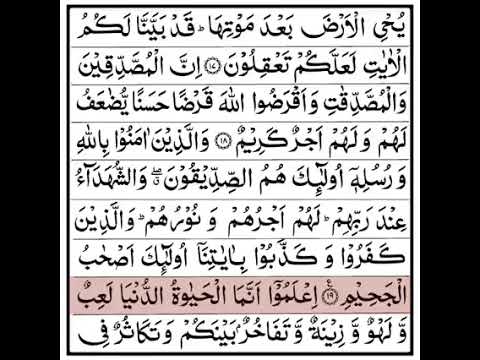 يُحْيِ الْاَرْضَ بَعْدَ مَوْتِهَا ؕ قَدْ بَيَّنَّا لَكُمُ
الْاٰيٰتِ لَعَلَّكُمْ تَعْقِلُوْنَ ﴿۱۷﴾ اِنَّ الْمُصَّدِّقِيْنَ
وَالْمُصَّدِّقٰتِ وَاَقْرَضُوا اللّٰهَ قَرْضًا حَسَنًا يُّضٰعَفُ
لَهُمْ وَلَهُمْ اَجْرٌ كَرِيْمٌ ﴿۱۸﴾ وَالَّذِيْنَ اٰمَنُوْا بِاللّٰهِ
وَرُسُلِهٖۤ اُولٰٓئِكَ هُمُ الصِّدِّيْقُوْنَ ۖ ۗ وَالشُّهَدَآءُ
عِنْدَ رَبِّهِمْ ؕ لَهُمْ اَجْرُهُمْ وَنُوْرُهُمْ ؕ وَالَّذِيْنَ
كَفَرُوْا وَكَذَّبُوْا بِاٰيٰتِنَاۤ اُولٰٓئِكَ اَصْحٰبُ
الْجَحِيْمِ ﴿۱۹﴾ ع اِعْلَمُوْۤا اَنَّمَا الْحَيٰوةُ الدُّنْيَا لَعِبٌ
وَّلَهْوٌ وَّزِيْنَةٌ وَّتَفَاخُرٌۢ بَيْنَكُمْ وَتَكَاثُرٌ فِى